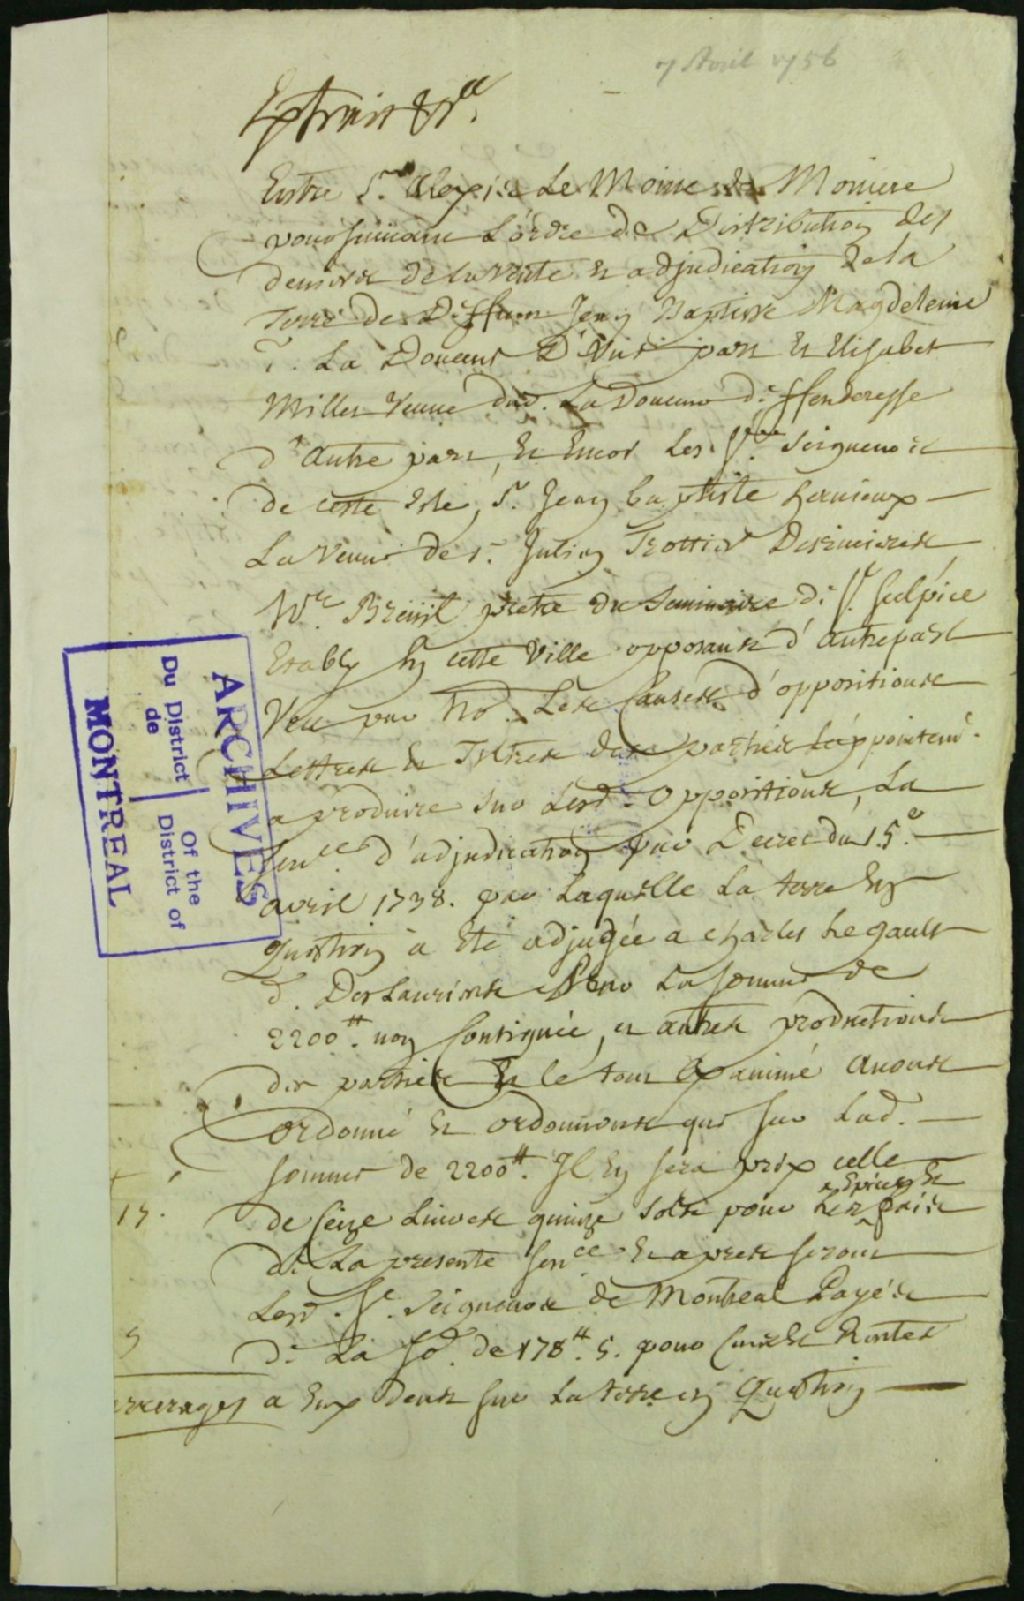 7 Avril 1756
Extrait &ca.
Entre Sr. Alexis Le Moine de Moniere
poursuivant L'ordre de Distribution des
deniers de la vente et adjudication de la
Terre de Deffunt Jean Baptiste Magdeleine
d. La Douceur D'une part Et Elisabet
Milles Veuve dud. La Douceur Deffenderesse
d'autre part, Et Encor Les Srs. Seigneurs
de cette Isle, Sr. Jean baptiste hervieux
La Veuve de Sr. Julien Trottier Desrivieres
Mre. Breuil pretre du Seminaire de St. Sulpice
Etably En cette Ville opposants d'autrepart
Veu par Nous Les Causes d'oppositions
Lettres et Titres des parties L'appointemt.
a produire sur Lesd. Oppositions, La
Sence. d'adjudication par Decret du 15e
avril 1738. par Laquelle La terre En
Question a Eté adjugée a Charles Legault
d. DesLauriers pour La somme de
2200tt. non Consignée, et autres productions
des parties Et le tout Examiné Avons
Ordonné et ordonnons que sur Lad.
somme de 2200tt. Il En sera prix celle
15.
de Seize Livres quinze sols pour Les Epices et frais
de La presente Sence. Et apres seront
Lesd. Srs. Seigneurs de Montreal Payés
5
de La Se. de 178tt. 5. pour Cens et Rentes
arrerages a Eux deus sur La terre en Question
ARCHIVES
Du District Of the
de District of
MONTREAL